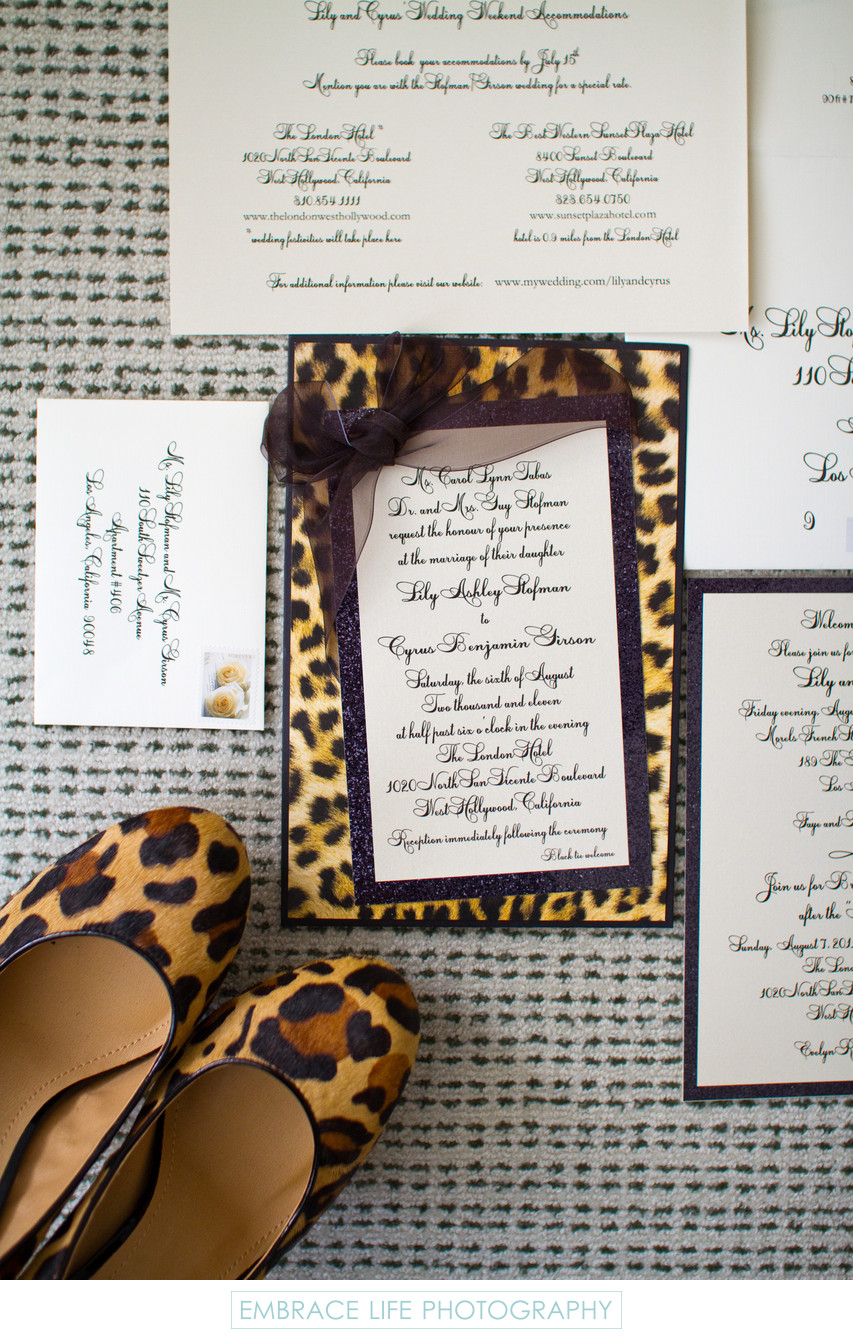 Lily and Cyrus' Wedding Weekend Accommodations
Please book your accommodations by July 15th
Mention you are with the Stofman/Girson wedding for a special rate.
The London Hotel *
1020 North San Vicente Boulevard
West Hollywood, California
310.854.1111
www.thelondonwesthollywood.com
*wedding festivities will take place here
The Best Western Sunset Plaza Hotel
8400 Sunset Boulevard
West Hollywood, California
323.654.0750
www.sunsetplazahotel.com
hotel is 0.9 miles from the London Hotel
For additional information please visit our website: www.mywedding.com/lilyandcyrus
Ms. Lily
110 S
Los
9
Ms. Lily Stofman and Mr. Cyrus Girson
110 South Sweetzer Avenue
Apartment #400
Los Angeles, California 90048
Ms. Carol Lynn Tabas
Dr. and Mrs. Guy Stofman
request the honour of your presence
at the marriage of their daughter
Lily Ashley Stofman
to
Cyrus Benjamin Girson
Saturday, the sixth of August
Two thousand and eleven
at half past six o'clock in the evening
The London Hotel
1020 North San Vicente Boulevard
West Hollywood, California
Reception immediately following the ceremony
Black tie welcome
Welcom
Please join us fo
Lily an
Friday evening, Augus
Morels French S
189 The
Los
Faye and
Join us for B
after the "
Sunday, August 7, 201
The Lon
1020 North San
West
Evelyn R
EMBRACE LIFE PHOTOGRAPHY